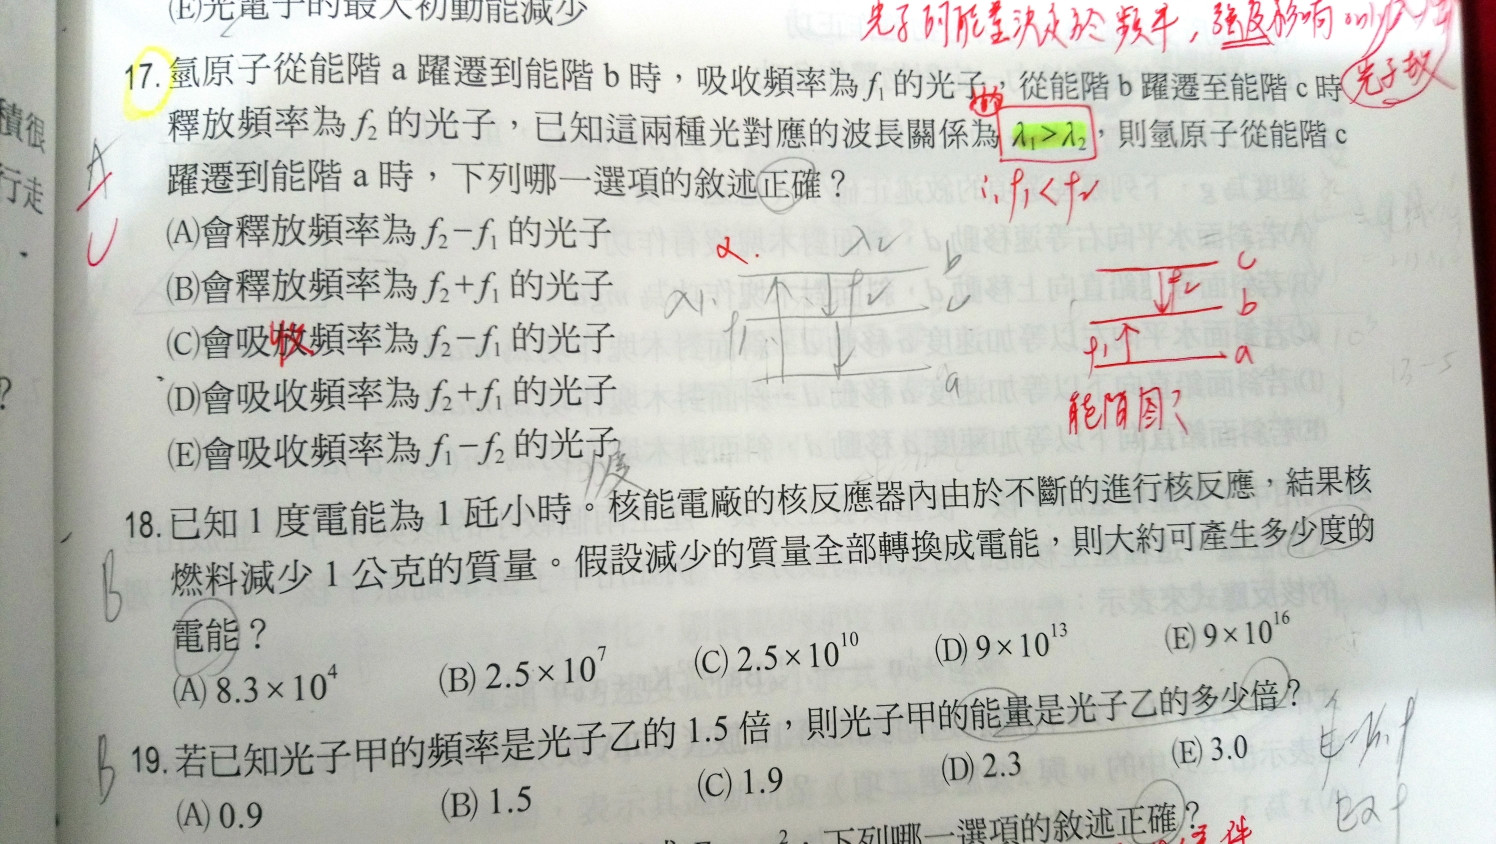 (E)光電子的最大初動能減少
光子的能量決定於頻率，強度影響only
光子數
積很
行走
17. 氫原子從能階 a 躍遷到能階 b 時，吸收頻率為 f₁ 的光子，從能階 b 躍遷至能階 c 時
釋放頻率為 f₂ 的光子，已知這兩種光對應的波長關係為 λ₁>λ₂，則氫原子從能階 c
躍遷到能階 a 時，下列哪一選項的敘述正確？
∴ f₁<f₂
A
C
(A)會釋放頻率為 f₂−f₁ 的光子
(B)會釋放頻率為 f₂+f₁ 的光子
(C)會吸收頻率為 f₂−f₁ 的光子
(D)會吸收頻率為 f₂+f₁ 的光子
(E)會吸收頻率為 f₁−f₂ 的光子
λ₂ b
λ₁ f₂ c
f₁
a
c
f₂
b
f₁ a
能階圖
?
18. 已知 1 度電能為 1 瓩小時。核能電廠的核反應器內由於不斷的進行核反應，結果核
燃料減少 1 公克的質量。假設減少的質量全部轉換成電能，則大約可產生多少度的
B
電能？
(A) 8.3×10⁴ (B) 2.5×10⁷ (C) 2.5×10¹⁰ (D) 9×10¹³ (E) 9×10¹⁶
B
19. 若已知光子甲的頻率是光子乙的 1.5 倍，則光子甲的能量是光子乙的多少倍？
(A) 0.9 (B) 1.5 (C) 1.9 (D) 2.3 (E) 3.0
E=hf
E∝f
下列哪一選項的敘述正確？